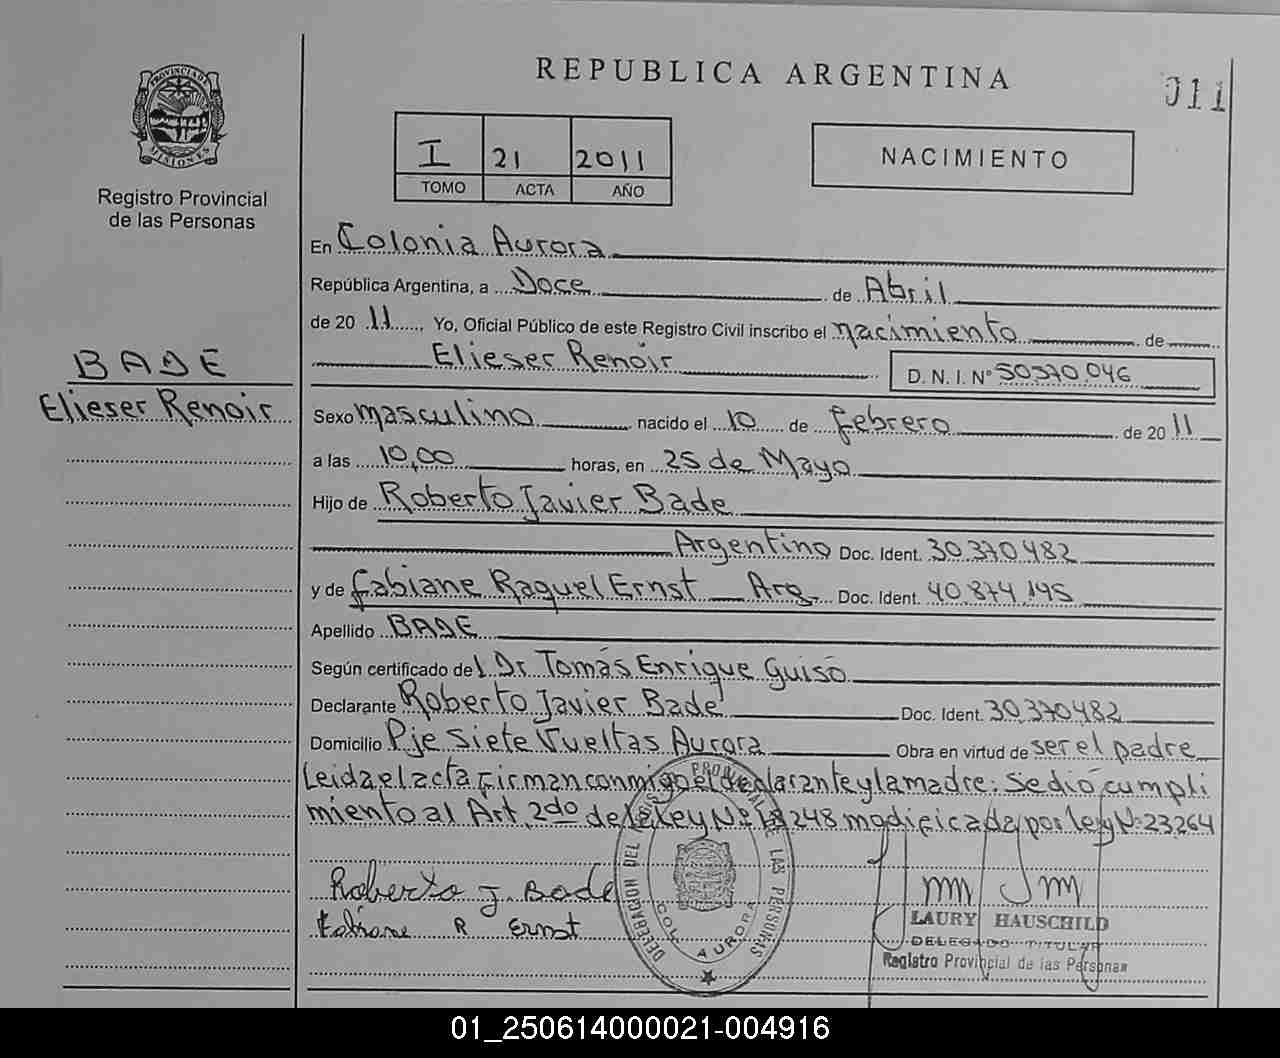 REPUBLICA ARGENTINA
011
PROVINCIA DE MISIONES
Registro Provincial
de las Personas
I 21 2011
TOMO ACTA AÑO
NACIMIENTO
En Colonia Aurora
República Argentina, a Doce de Abril
de 2011 Yo, Oficial Público de este Registro Civil inscribo el nacimiento de
Elieser Renoir D. N. I. Nº 50370.046
BADE
Elieser Renoir
Sexo masculino nacido el 10 de febrero de 2011
a las 10,00 horas, en 25 de Mayo
Hijo de Roberto Javier Bade
Argentino Doc. Ident. 30.370.482
y de Fabiane Raquel Ernst Arg. Doc. Ident. 40.874.145
Apellido BADE
Según certificado del Dr Tomás Enrique Guiso
Declarante Roberto Javier Bade Doc. Ident. 30.370.482
Domicilio Pje Siete Vueltas Aurora Obra en virtud de ser el padre
Leida el acta firman conmigo el declarante y la madre: Se dió cumpli
miento al Art. 2do de la Ley Nº 18248 modificada por ley Nº 23264
Roberto J. Bade
Fabiane R Ernst
DELEGACION DEL REG. PROVINCIAL DE LAS PERSONAS
COL. AURORA
LAURY HAUSCHILD
DELEGADO TITULAR
Registro Provincial de las Personas
01_250614000021-004916